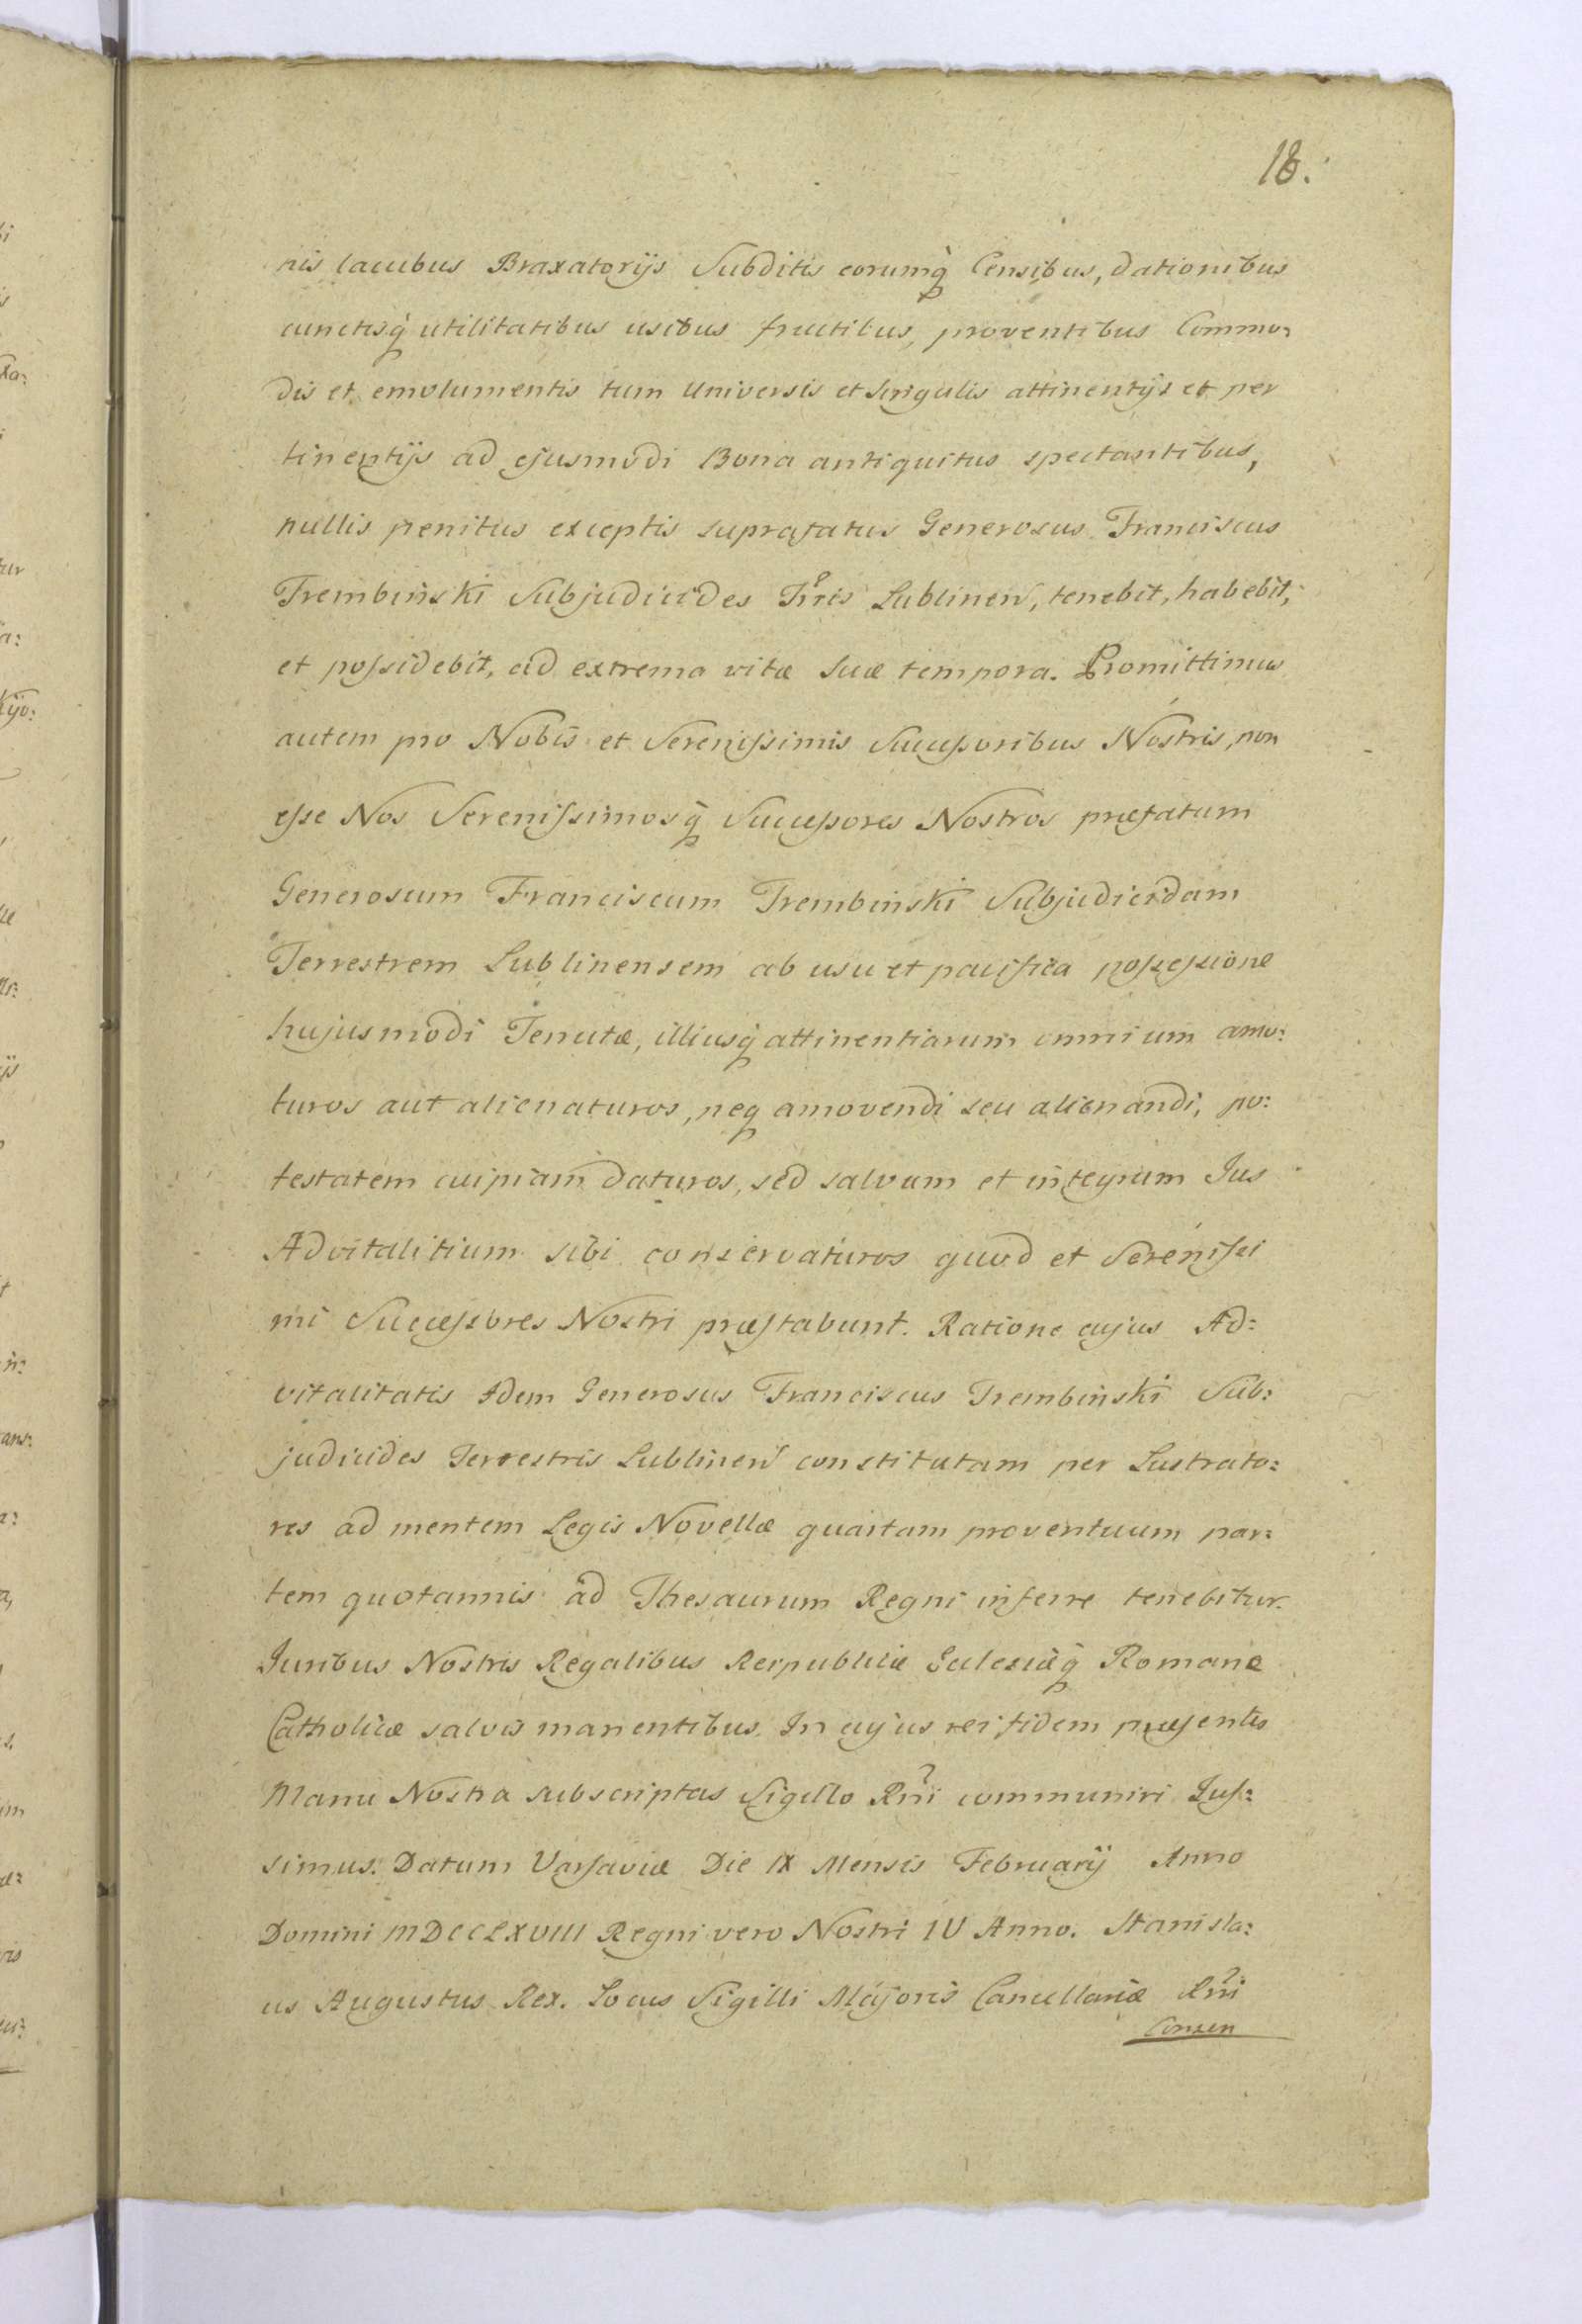 18.
nis lacubus Braxatorijs Subditis eorumq̀ Censibus, dationibus
cunctisq̀ utilitatibus usibus fructibus, proventibus Commo:
dis et emolumentis tum Universis et singulis attinentijs et per
tinentijs ad ejusmodi Bona antiquitus spectantibus,
nullis penitus exceptis suprafatus Generosus Franciscus
Trembinski Subjudicides Trris Lublinen, tenebit, habebit,
et possidebit, ad extrema vitæ suæ tempora. Promittimus
autem pro Nobis et Serenissimis Successoribus Nostris, non
esse Nos Serenissimosq̀ Successores Nostros præfatum
Generosum Franciscum Trembinski Subjudicidam
Terrestrem Lublinensem ab usu et pacifica possessione
hujusmodi Tenutæ, illiusq̀ attinentiarum omnium amo:
turos aut alienaturos, neq amovendi seu alienandi, po:
testatem cuipiam daturos, sed salvum et integrum Jus
Advitalitium sibi conservaturos quod et Serenissi
mi Successores Nostri præstabunt. Ratione cujus Ad:
vitalitatis Idem Generosus Franciscus Trembinski Sub:
judicides Terrestris Lublinen constitutam per Lustrato:
res ad mentem Legis Novellæ quartam proventuum par:
tem quotannis ad Thesaurum Regni inferre tenebitur.
Juribus Nostris Regalibus Reipublicæ Eclesiæq̀ Romane
Catholicæ salvis manentibus. In cujus rei fidem præsentes
Manu Nostra subscriptas Sigillo Rni communiri Jus:
simus. Datum Varsaviæ Die IX Mensis Februarij Anno
Domini MDCCLXVIII Regni vero Nostri IV Anno. Stanisla:
us Augustus Rex. Locus Sigilli Majoris Cancellariæ Rni
Consen